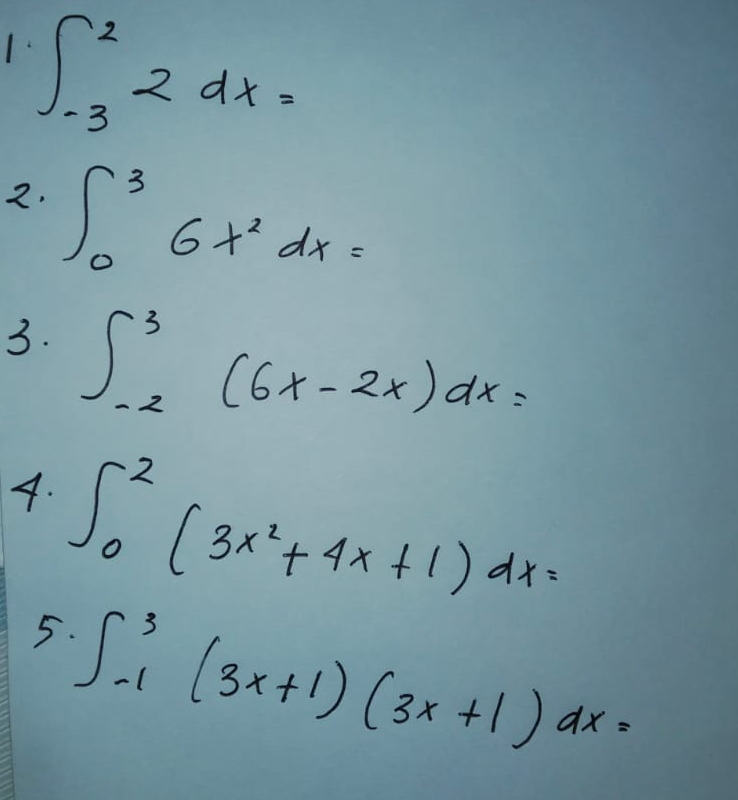 1. ∫_{-3}^{2} 2 dx =
2. ∫_{0}^{3} 6x² dx =
3. ∫_{-2}^{3} (6x - 2x) dx =
4. ∫_{0}^{2} (3x² + 4x + 1) dx =
5. ∫_{-1}^{3} (3x + 1) (3x + 1) dx =